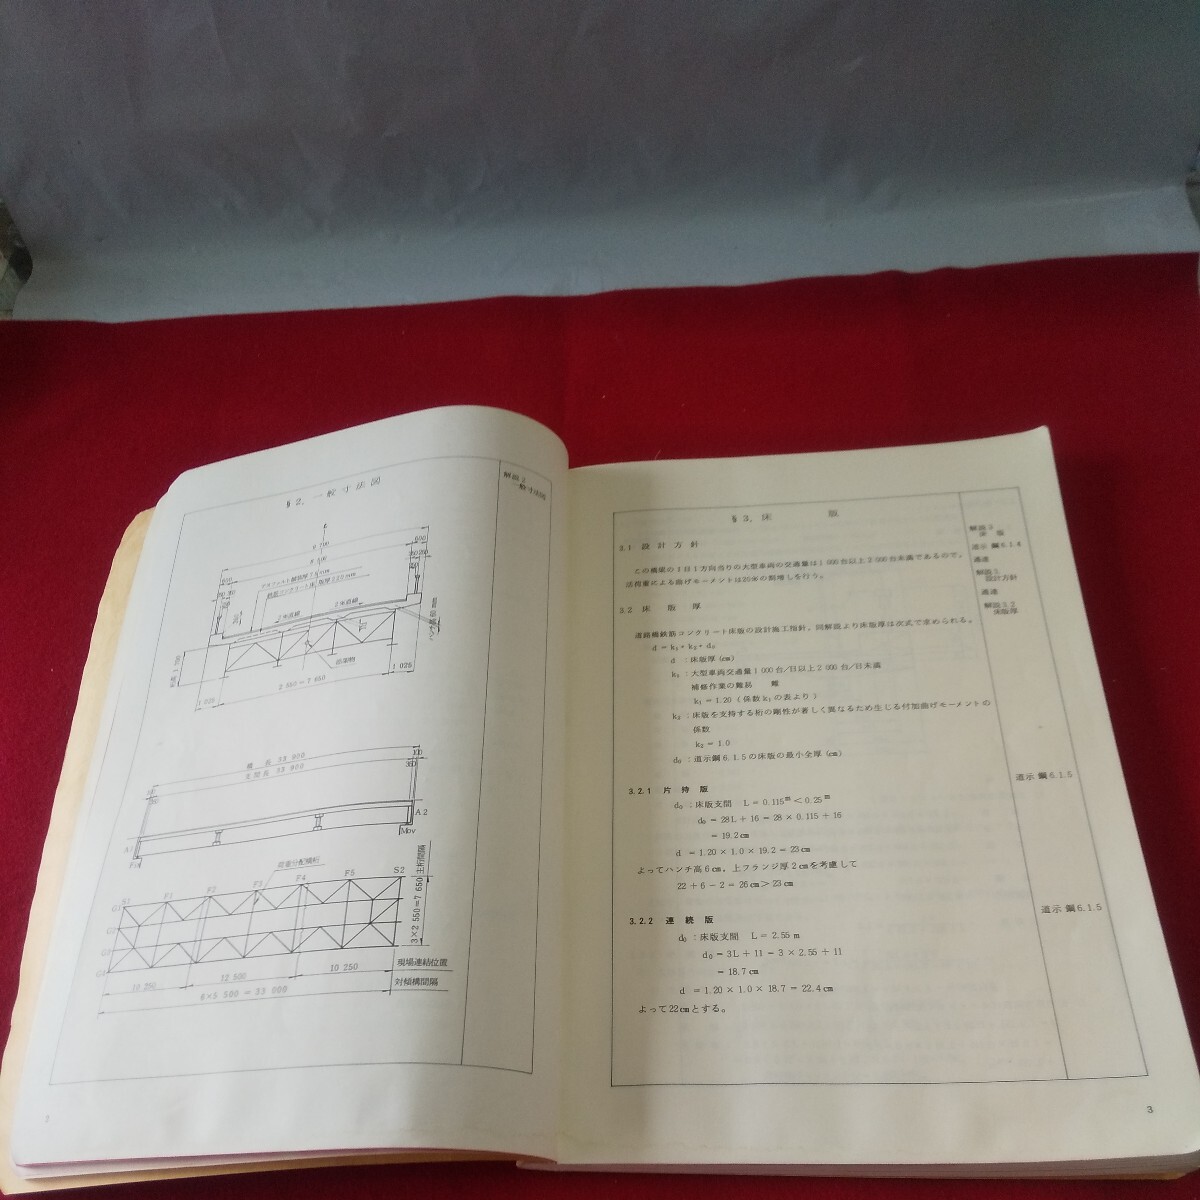 §2. 一般寸法図
解説2
一般寸法図
600
9 700
8 500
アスファルト舗装厚75mm
鉄筋コンクリート床版厚220mm
2%直線
2%直線
1 025
3 550=7 650
1 025
橋長 33 800
100
A1
Fix
A2
Mov
荷重分配横桁
S1
F1
F2
F3
F4
F5
S2
G1
G2
G3
G4
主桁間隔
3×2 550=7 650
10 250
12 500
10 250
現場連結位置
6×5 500=33 000
対傾構間隔
§3. 床 版
解説3
床 版
3.1 設計方針
道示 鋼6.1.4
この橋梁の1日1方向当りの大型車両の交通量は1 000台以上2 000台未満であるので、
活荷重による曲げモーメントは20%の割増しを行う。
解説3.
設計方針
3.2 床 版 厚
解説3.2
床版厚
道路橋鉄筋コンクリート床版の設計施工指針、同解説より床版厚は次式で求められる。
d = k₁・k₂・d₀
d :床版厚(cm)
k₁:大型車両交通量1 000台/日以上2 000台/日未満
補修作業の難易 難
k₁=1.20(係数k₁の表より)
k₂:床版を支持する桁の剛性が著しく異なるため生じる付加曲げモーメントの
係数
k₂=1.0
d₀:道示鋼6.1.5の床版の最小全厚(cm)
3.2.1 片 持 版
道示 鋼6.1.5
d₀:床版支間 L=0.115m<0.25m
d₀=28L+16=28×0.115+16
=19.2cm
d =1.20×1.0×19.2=23cm
よってハンチ高6cm、上フランジ厚2cmを考慮して
22+6-2=26cm>23cm
3.2.2 連 続 版
道示 鋼6.1.5
d₀:床版支間 L=2.55m
d₀=3L+11=3×2.55+11
=18.7cm
d =1.20×1.0×18.7=22.4cm
よって22cmとする。
3